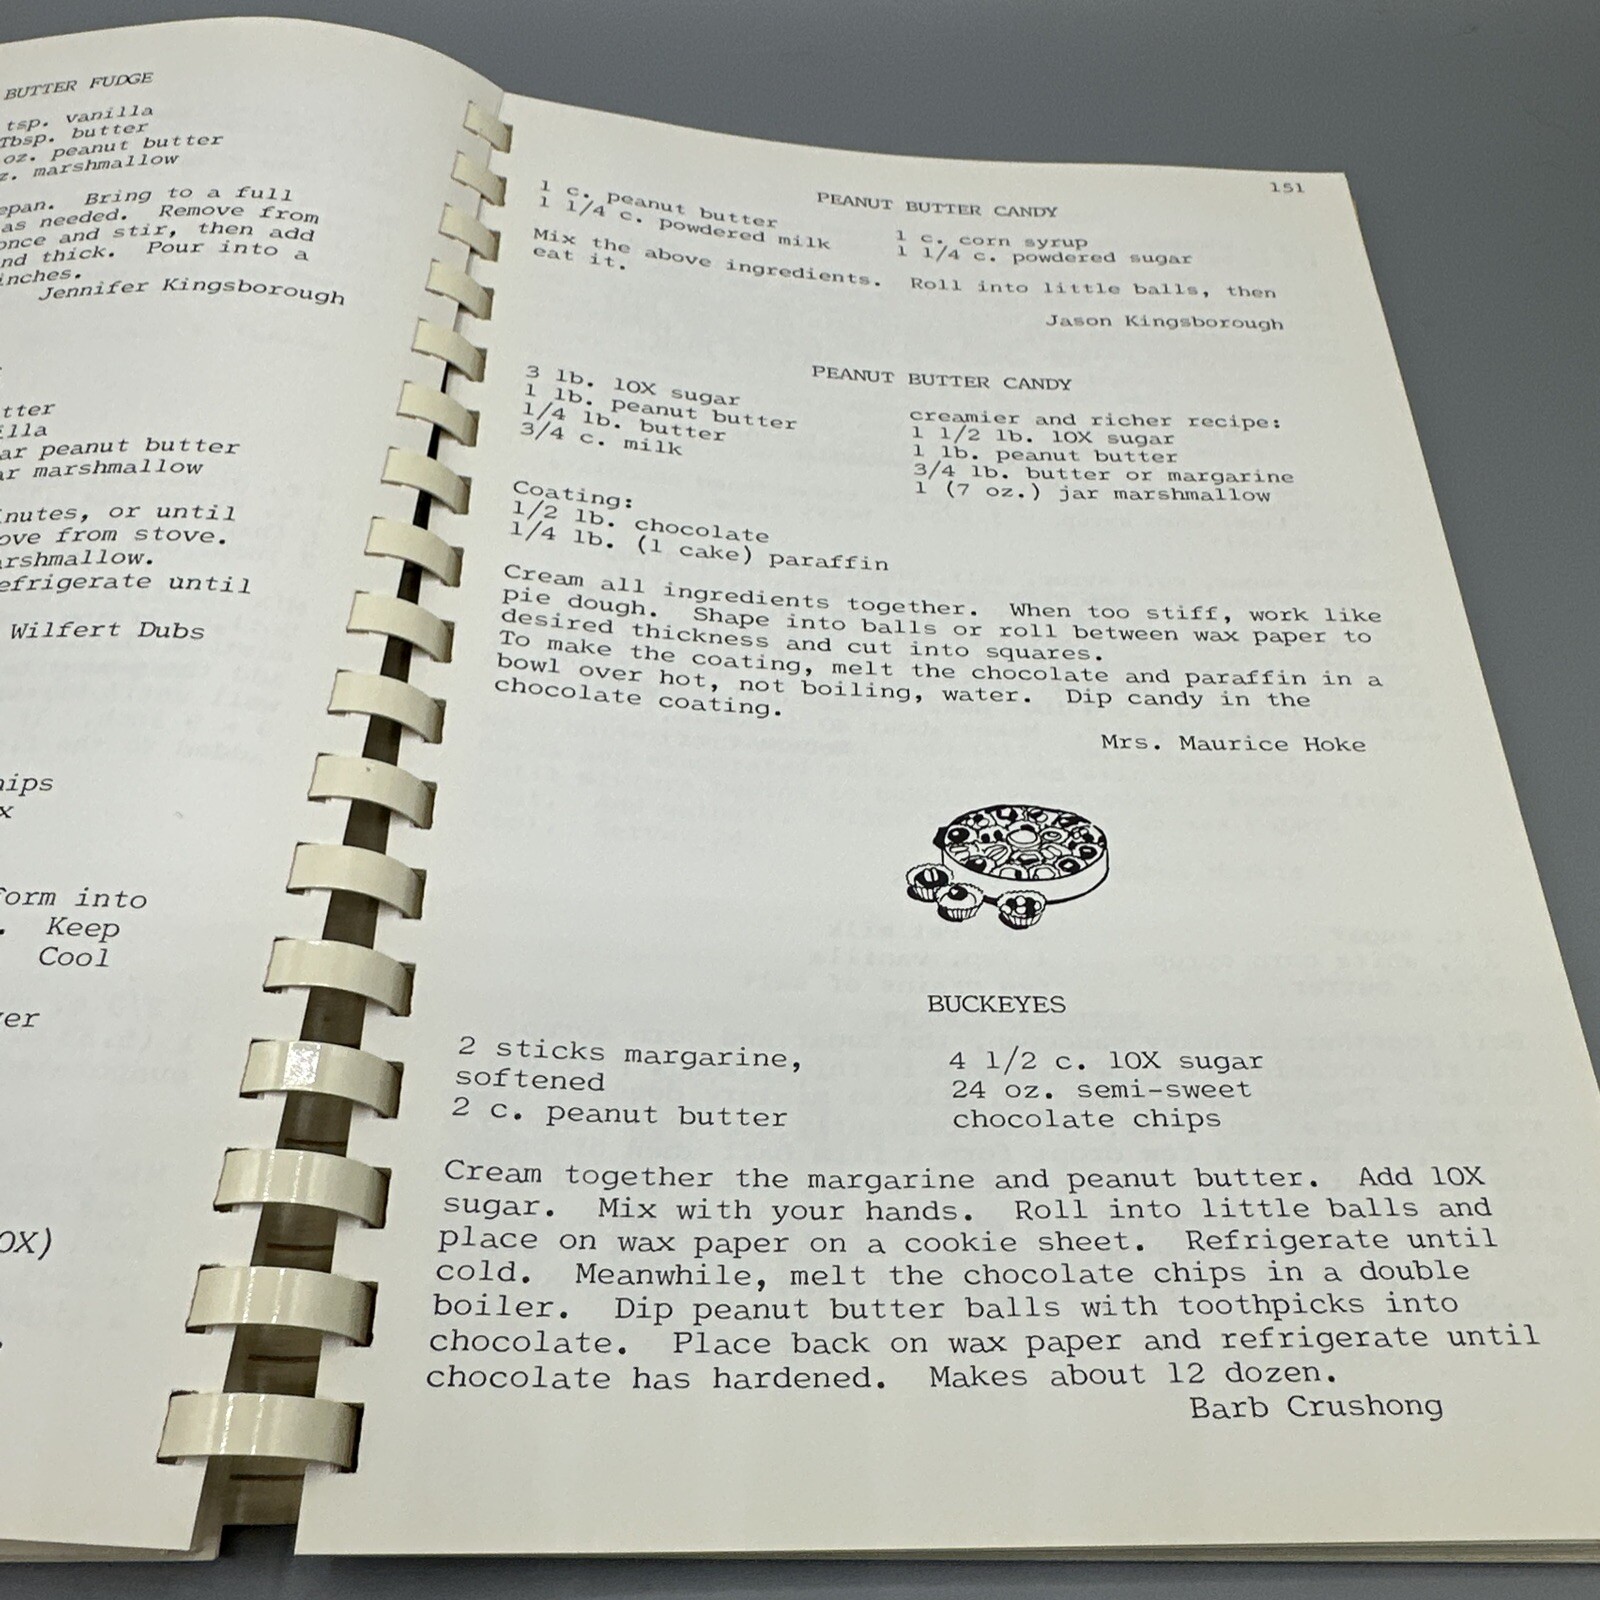 BUTTER FUDGE
tsp. vanilla
Tbsp. butter
oz. peanut butter
z. marshmallow
epan. Bring to a full
as needed. Remove from
once and stir, then add
nd thick. Pour into a
inches.
Jennifer Kingsborough
tter
illa
ar peanut butter
ar marshmallow
nutes, or until
ove from stove.
arshmallow.
efrigerate until
Wilfert Dubs
hips
x
form into
. Keep
Cool
ver
OX)
151
PEANUT BUTTER CANDY
1 c. peanut butter
1 1/4 c. powdered milk
1 c. corn syrup
1 1/4 c. powdered sugar
Mix the above ingredients. Roll into little balls, then
eat it.
Jason Kingsborough
PEANUT BUTTER CANDY
3 lb. 10X sugar
1 lb. peanut butter
1/4 lb. butter
3/4 c. milk
creamier and richer recipe:
1 1/2 lb. 10X sugar
1 lb. peanut butter
3/4 lb. butter or margarine
1 (7 oz.) jar marshmallow
Coating:
1/2 lb. chocolate
1/4 lb. (1 cake) paraffin
Cream all ingredients together. When too stiff, work like
pie dough. Shape into balls or roll between wax paper to
desired thickness and cut into squares.
To make the coating, melt the chocolate and paraffin in a
bowl over hot, not boiling, water. Dip candy in the
chocolate coating.
Mrs. Maurice Hoke
BUCKEYES
2 sticks margarine,
softened
2 c. peanut butter
4 1/2 c. 10X sugar
24 oz. semi-sweet
chocolate chips
Cream together the margarine and peanut butter. Add 10X
sugar. Mix with your hands. Roll into little balls and
place on wax paper on a cookie sheet. Refrigerate until
cold. Meanwhile, melt the chocolate chips in a double
boiler. Dip peanut butter balls with toothpicks into
chocolate. Place back on wax paper and refrigerate until
chocolate has hardened. Makes about 12 dozen.
Barb Crushong